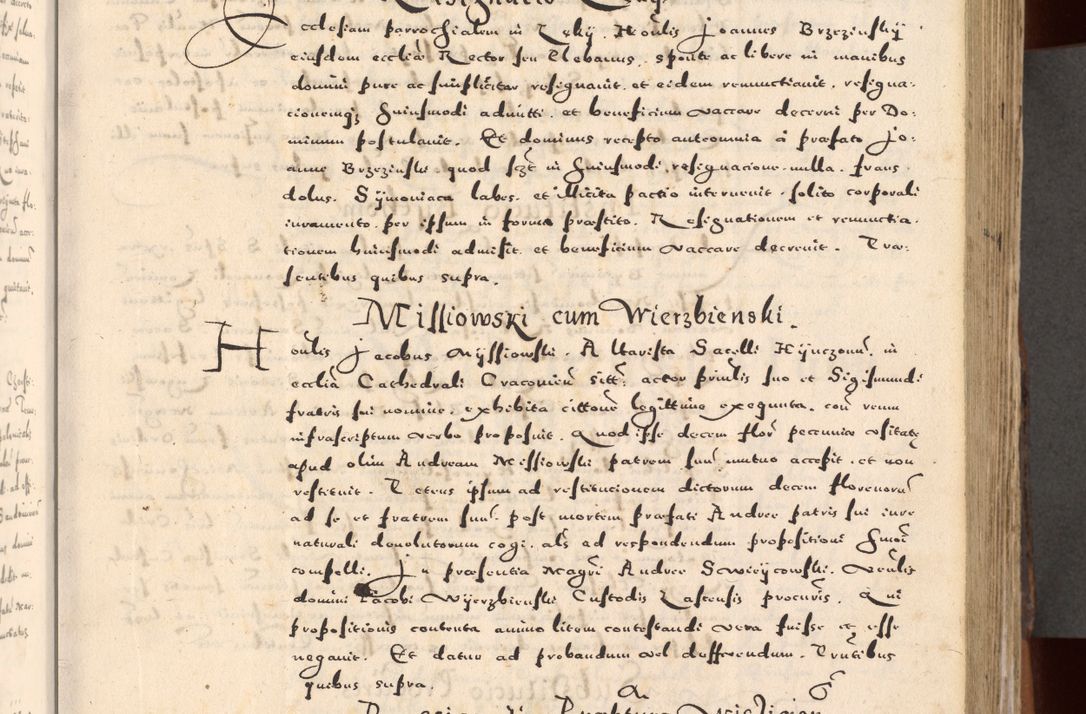 Ecclesiam parrochialem in Łęky. Honlis Joannes Brzezinskij
eiusdem ecclīæ Rector seu Plebanus, sponte ac libere in manibus
domini pure ac simpliciter resignauit, et eidem renunctiauit, resigna-
cionemq; huiusmodi admitti, et beneficium vaccare decerni per Do-
minum postulauit. Et dominus recepto anteomnia á præfato Jo-
anne Brzezinski, quod in huiusmodi resignacione nulla fraus,
dolus, Symoniaca labes, et illicita pactio interuenit, solito corporali
iuramento, per ipsum in forma præstito, Resignationem et renunctia-
tionem huiusmodi admisit, et beneficium vaccare decreuit. Præ-
sentibus quibus supra.
Missiowski cum Wierzbienski.
Honlis Jacobus Myssiowski, Altarista Sacelli Hynczonis, in
ecclīa Cathedrali Cracovien̄ sitt: actor prīnlis suo et Sigismundi
fratris sui nomine, exhibita cittone legittime exequuta, con reum
infrascriptum verbo proposuit. Quod ipse decem flor pecuniæ vsitatę
apud olim Andream Missiowski patrem suū mutuo accepit, et non
restituit. Petens ipsum ad restitucionem dictorum decem florenorū
ad se et fratrem suū post mortem præfati Andree patris sui iure
naturali deuolutorum cogi, als ad respondendum propositioni hmoi
compelli. In præsentia Magri Andree Swieycowski, Venlis
domini Jacobi Wyerzbienski Custodis Lascensis procuris. Qui
propositionis contenta animo litem contestandi vera fuisse et esse
negauit. Et datur ad probandum vel defferendum. Prntibus
quibus supra.